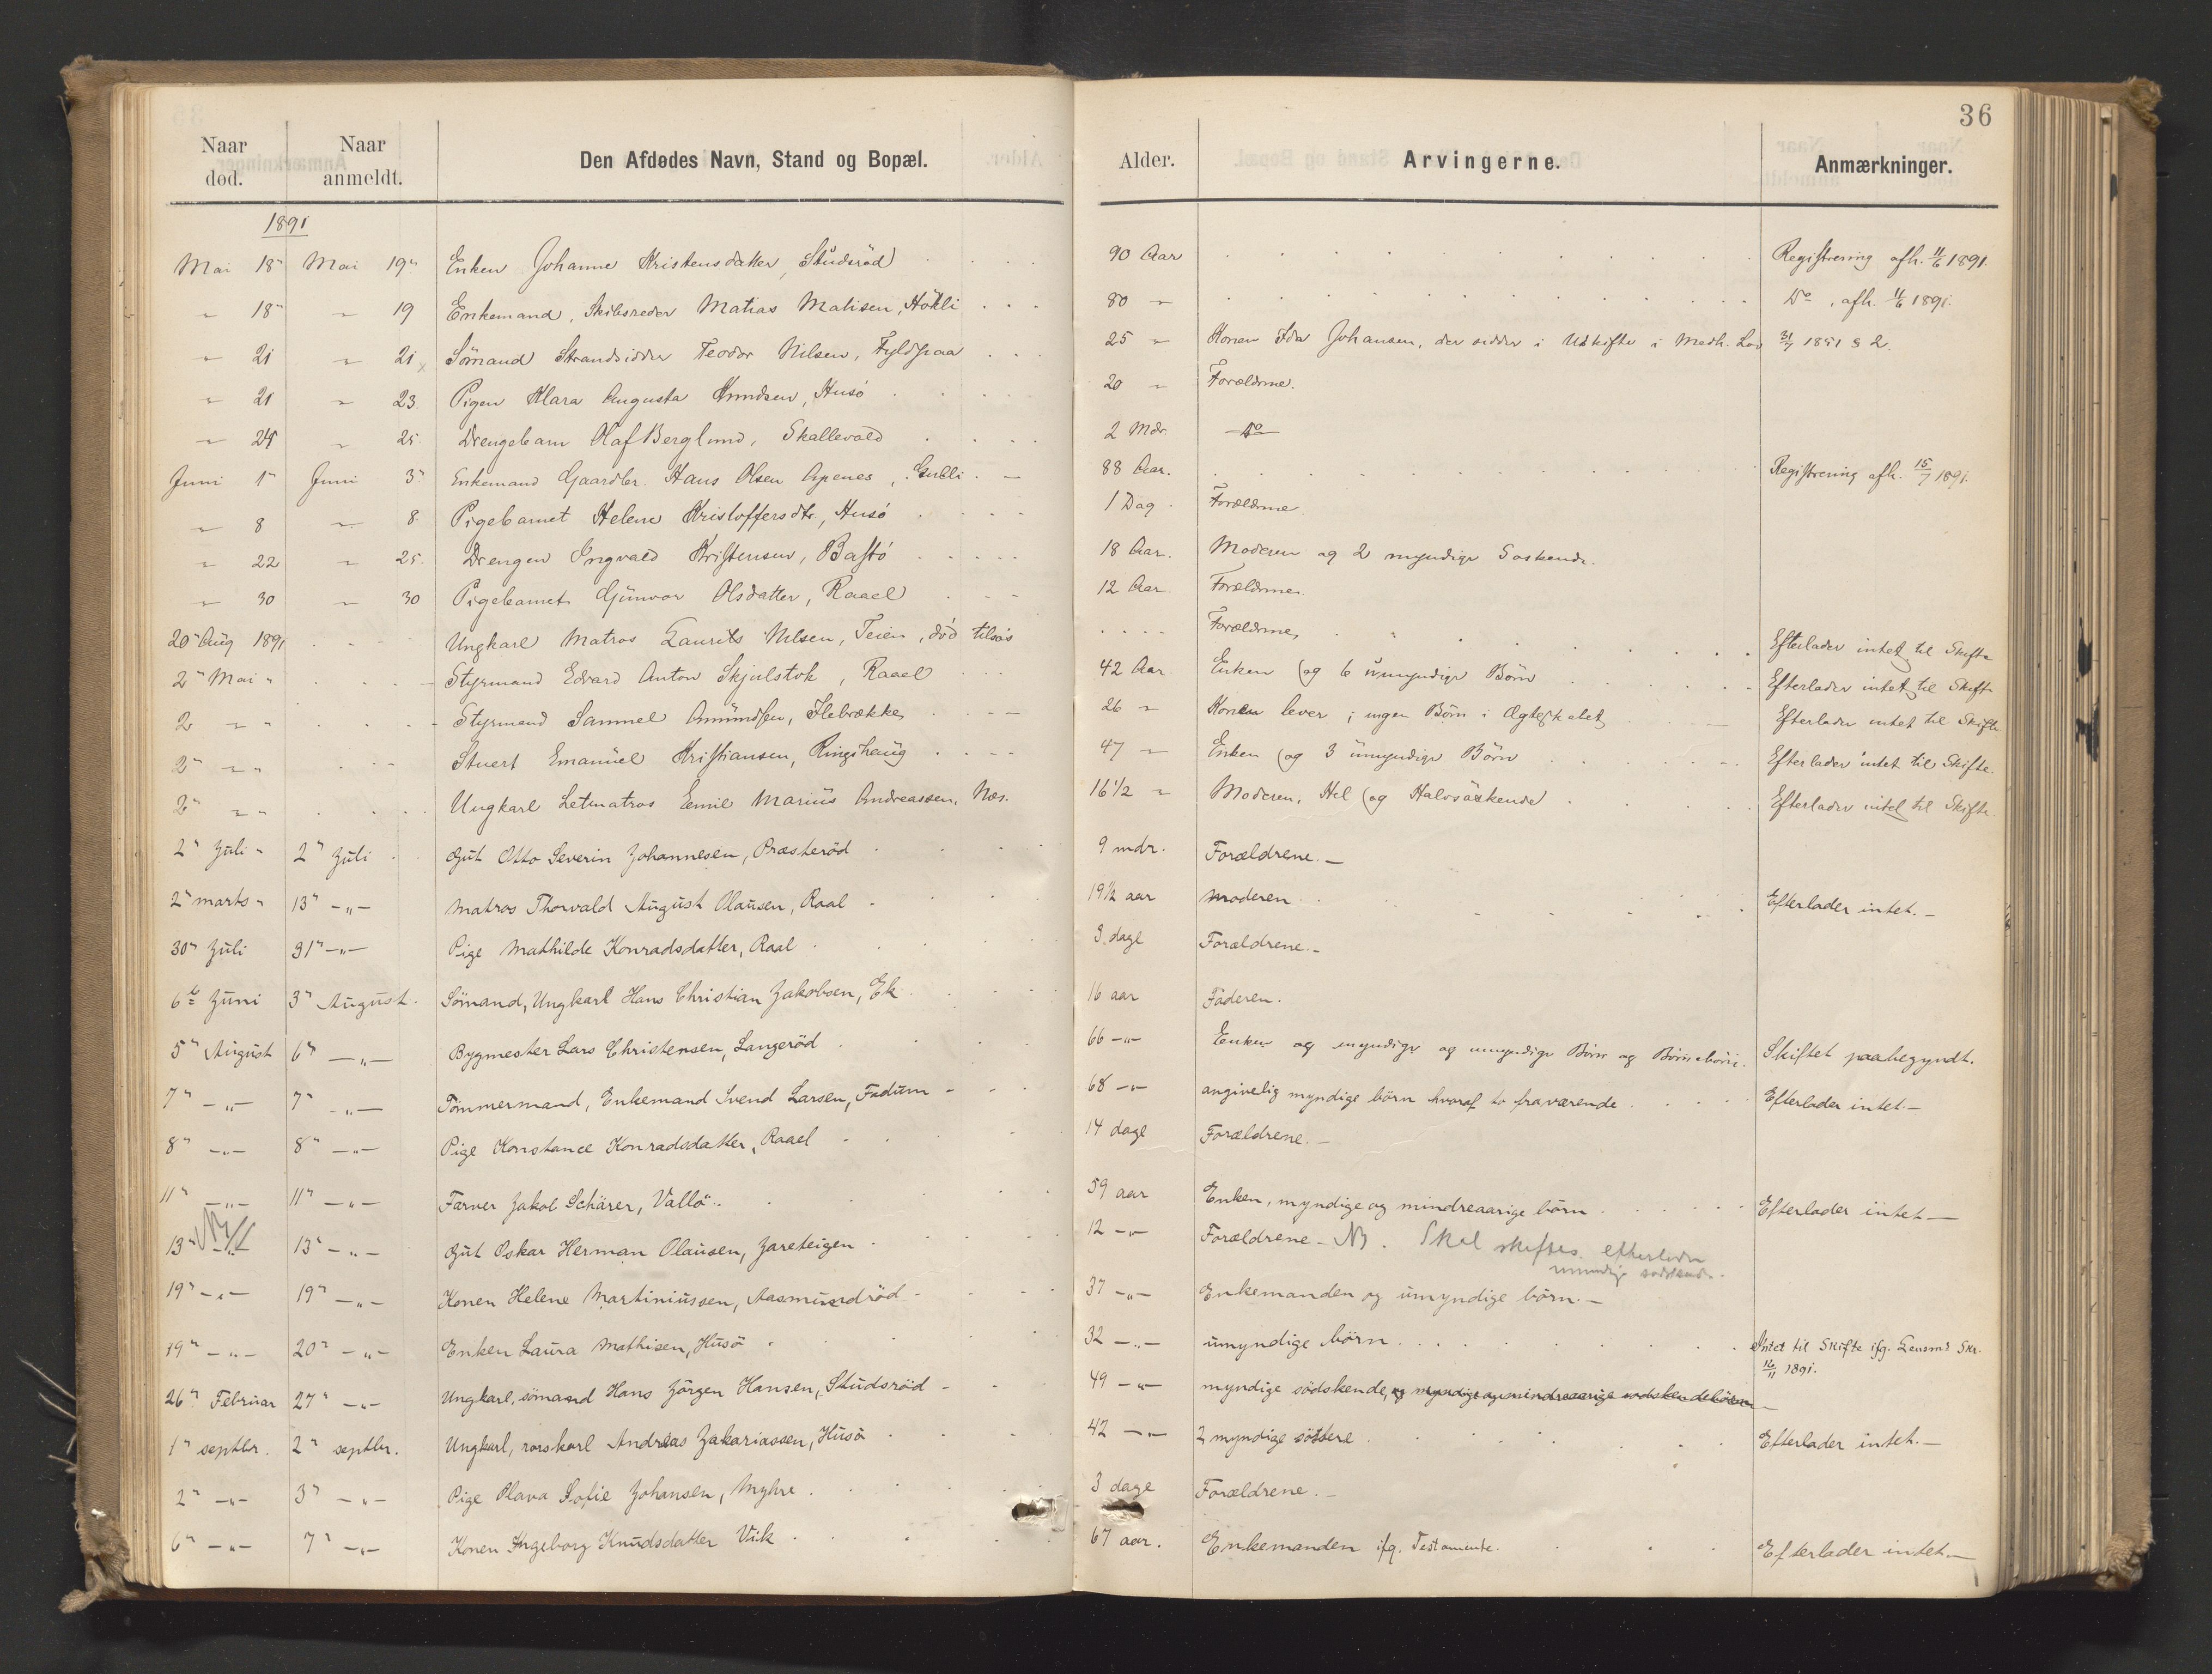 36
Naar død. Naar anmeldt. Den Afdødes Navn, Stand og Bopæl. Alder. Arvingerne. Anmærkninger.
1891
Mai 18 Mai 19 Enken Johanne Kristensdatter, Studsröd 90 Aar Registrering afh. 11/6 1891.
" 18 " 19 Enkemand, Skibsreder Matias Matisen, 80 " Do, afh. 11/6 1891.
" 21 " 21 Sömand Strandsidder Teodor Nilsen, Fyldpaa 25 " Konen Ida Johansen, der sidder i Uskifte i Medh. Lov 31/7 1851 § 2.
" 21 " 23 Pigen Klara Augusta Knudsen, Husö 20 " Forældrene.
" 24 " 25. Drengebarn Olaf Berglund, Skallevold 2 Mdr. Do
Juni 1 Juni 3 Enkemand Gaardbr. Hans Olsen Apenes, Gulli 88 Aar. Registrering afh. 15/7 1891.
" 8 " 8. Pigebarnet Helene Kristoffersdtr., Husö 1 Dag Forældrene.
" 22 " 25. Drengen Ingvald Kristensen, Bastö 18 Aar. Moderen og 2 myndige Söskende.
" 30 " 30 Pigebarnet Gunvor Olsdatter, Raael 12 Aar. Forældrene.
20 Aug 1891 Ungkarl Matros Laurits Nilsen, Teien, död tilsös Forældrene, Efterlader intet til Skifte
2 Mai " Styrmand Edvard Anton Skjelstok, Raael 42 Aar Enken (og 6 umyndige Börn Efterlader intet til Skifte
2 " " Styrmand Samuel Amundsen, Ilebrække, 26 " Konen lever; ingen Börn i Ægteskabet Efterlader intet til Skifte
2 " " Stuert Emanuel Kristiansen, Ringshaug 47 " Enken (og 3 umyndige Börn Efterlader intet til Skifte.
2 " " Ungkarl Letmatros Eemil Marius Andreassen, Næs. 16 1/2 " Moderen, Hel (og Halvsöskende Efterlader intet til Skifte
2 Juli " 2 Juli Gut Otto Severin Johannesen, Præsteröd 9 mdr. Forældrene. —
2 marts " 13 -"- Matros Thorvald August Olausen, Raal 19 1/2 aar Moderen Efterlader intet. —
30 Juli 31 -"- Pige Mathilde Konradsdatter, Raal 3 dage Forældrene. —
6te Juni 3 August. Sömand, Ungkarl Hans Christian Jakobsen, Ek 16 aar Faderen.
5 August 6 -"- Bygmester Lars Christensen, Langeröd 66 -"- Enken og myndige og umyndige Börn og Börnebörn. Skiftet paabegyndt.
7 -"- 7 -"- Tömmermand, Enkemand Svend Larsen, Fadum 68 -"- angivelig myndige börn hvoraf to fraværende Efterlader intet. —
8 -"- 8 -"- Pige Konstance Konradsdatter, Raael 14 dage Forældrene. —
11 -"- 11 -"- Farver Jakob Schärer, Vallö 59 aar Enken, myndige og mindreaarige börn Efterlader intet —
13 -"- 13 -"- Gut Oskar Herman Olausen, Jareteigen 12 -"- Forældrene - NB. Skal skiftes efterlader
umyndige södskende.
19 -"- 19 -"- Konen Helene Martiniussen, Aasmundröd 37 -"- Enkemanden og umyndige börn. —
19 -"- 20 -"- Enken Laura Mathisen, Husö 32 -"- umyndige börn Intet til Skifte ifg. Lensms Skr.
16/11 1891.
26 Februar 27 -"- Ungkarl, sömand Hans Jörgen Hansen, Studsröd 49 -"- myndige södskende, og myndige og mindreaarige södskendebörn
1 septbr. 2 septbr. Ungkarl, rorskarl Andreas Zakariassen, Husö 42 -"- 2 myndige söstere Efterlader intet. —
2 -"- 3 -"- Pige Olava Sofie Johansen, Myhre 3 dage Forældrene. —
6 -"- 7 -"- Konen Ingeborg Knudsdatter Vik 67 aar. Enkemanden ifg. Testamente. Efterlader intet. —